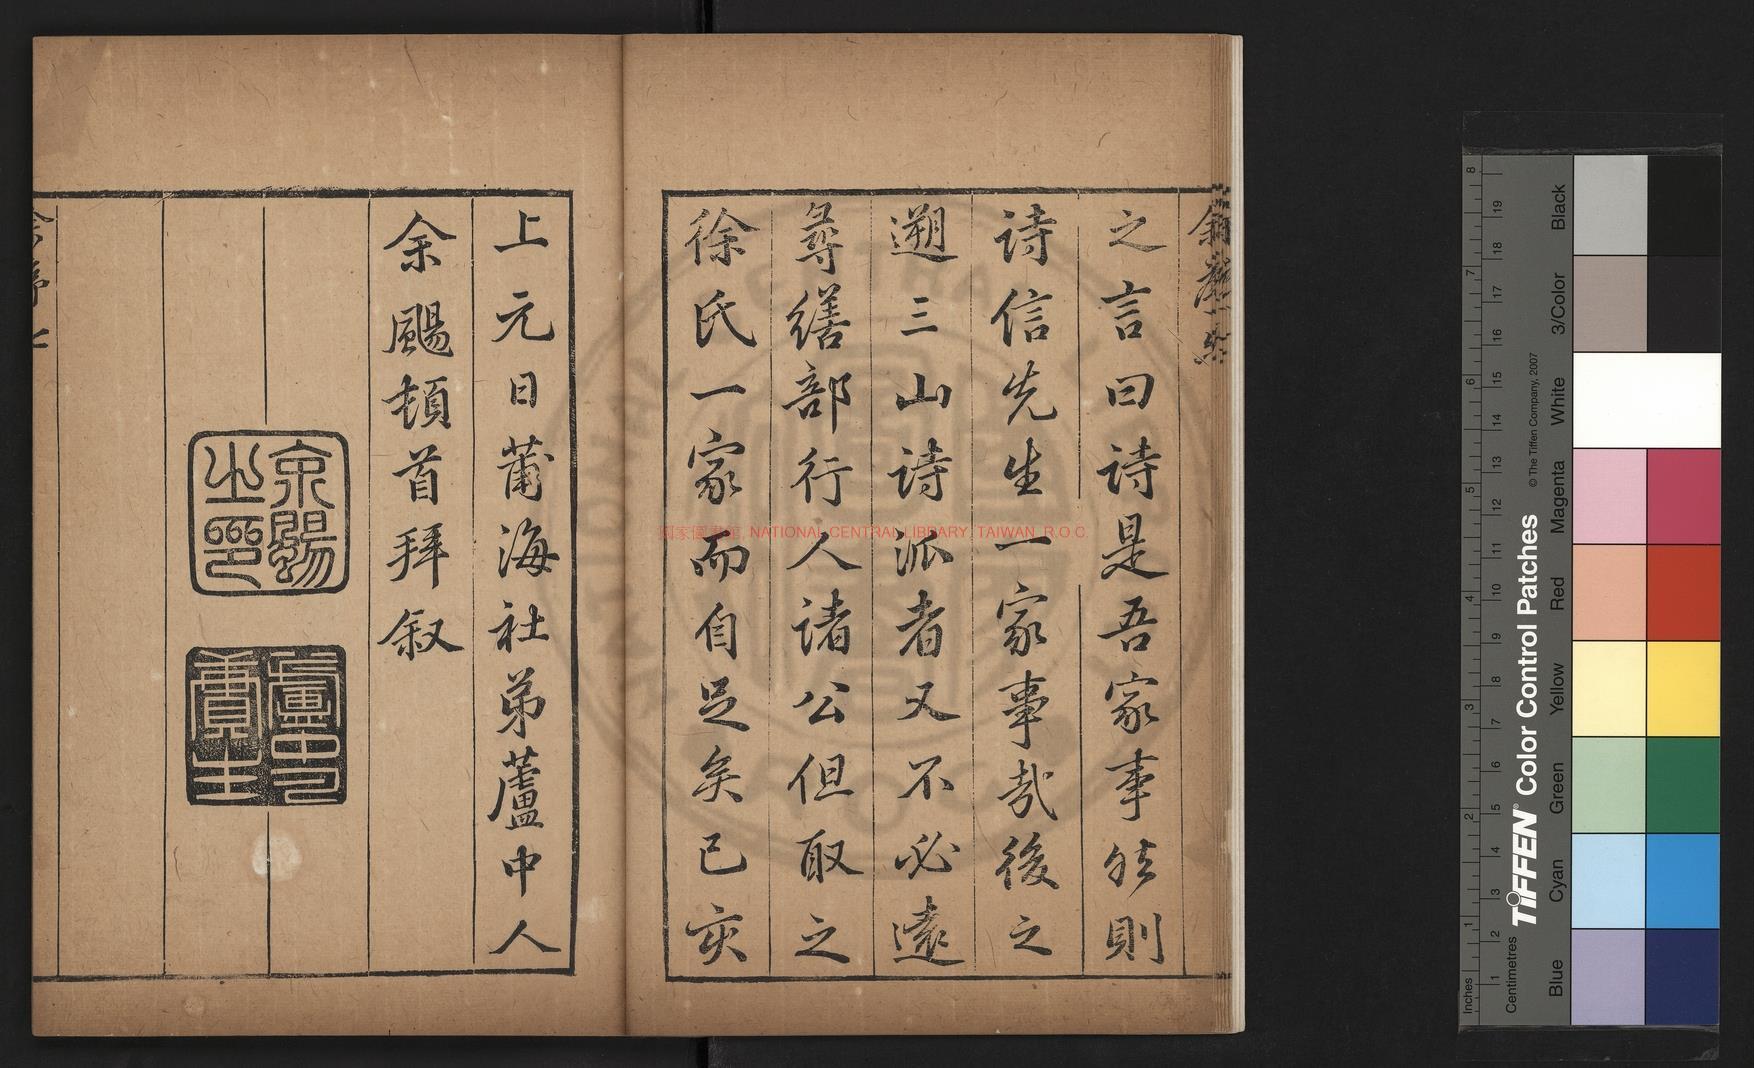 之言曰詩是吾家事然則
詩信先生一家事哉後之
遡三山詩派者又不必遠
尋繕部行人諸公但取之
徐氏一家而自足矣己亥
上元日莆海社弟蘆中人
余颺頓首拜叙
余颺
之印
蘆中人
國家圖書館 NATIONAL CENTRAL LIBRARY, TAIWAN R.O.C.
Inches
1 2 3 4 5 6 7 8
Centimetres
1 2 3 4 5 6 7 8 9 10 11 12 13 14 15 16 17 18 19
TIFFEN® Color Control Patches
© The Tiffen Company, 2007
Blue
Cyan
Green
Yellow
Red
Magenta
White
3/Color
Black